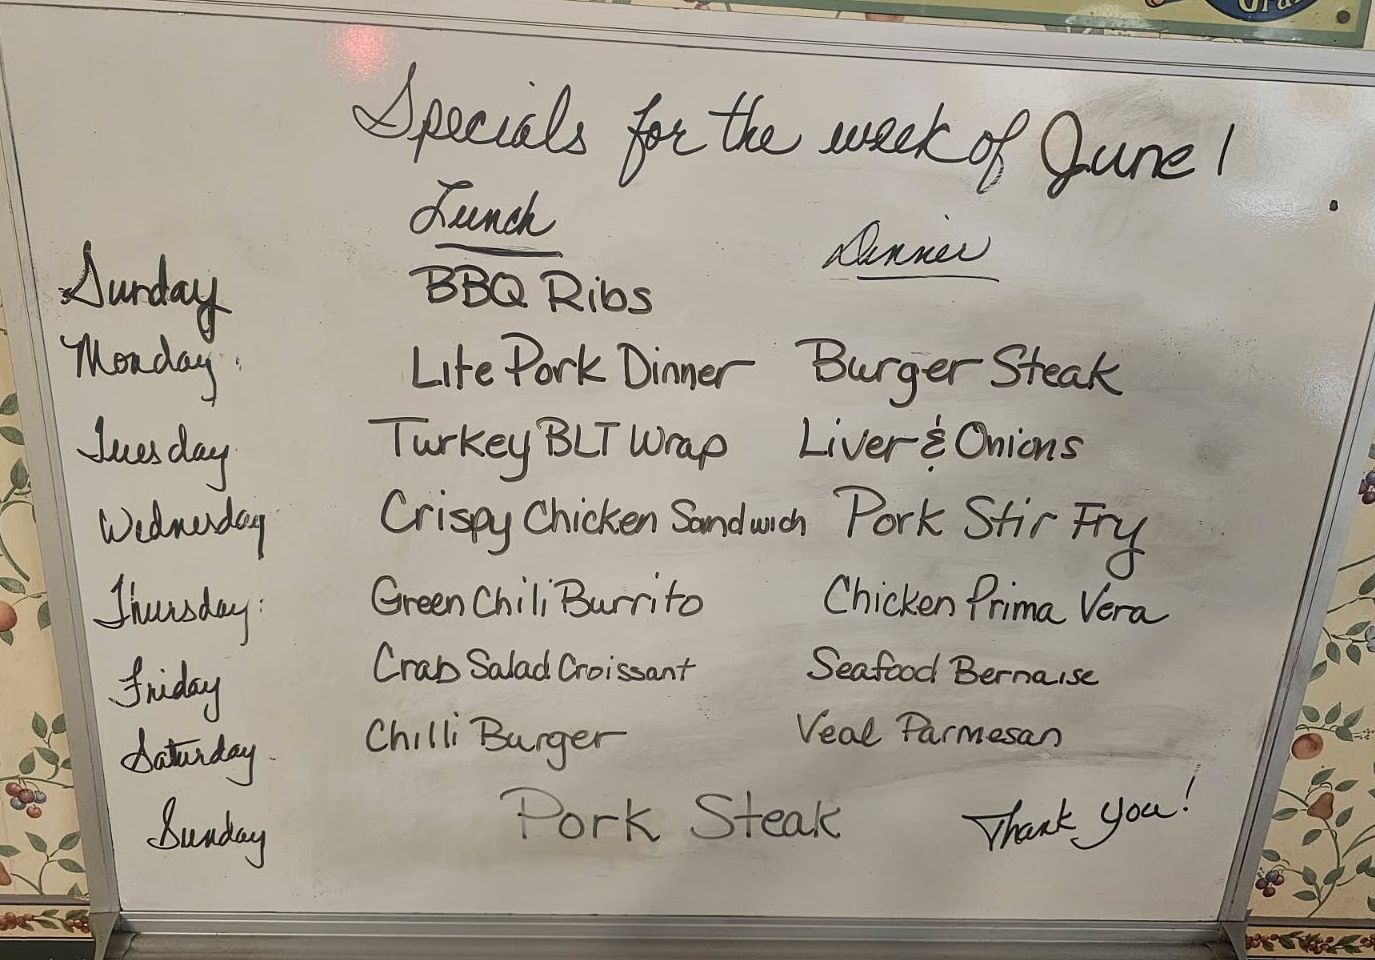 Gra
Specials for the week of June 1
Lunch Dinner
Sunday BBQ Ribs
Monday: Lite Pork Dinner Burger Steak
Tuesday Turkey BLT Wrap Liver & Onions
Wednesday Crispy Chicken Sandwich Pork Stir Fry
Thursday: Green Chili Burrito Chicken Prima Vera
Friday Crab Salad Croissant Seafood Bernaise
Saturday Chilli Burger Veal Parmesan
Sunday Pork Steak Thank you!